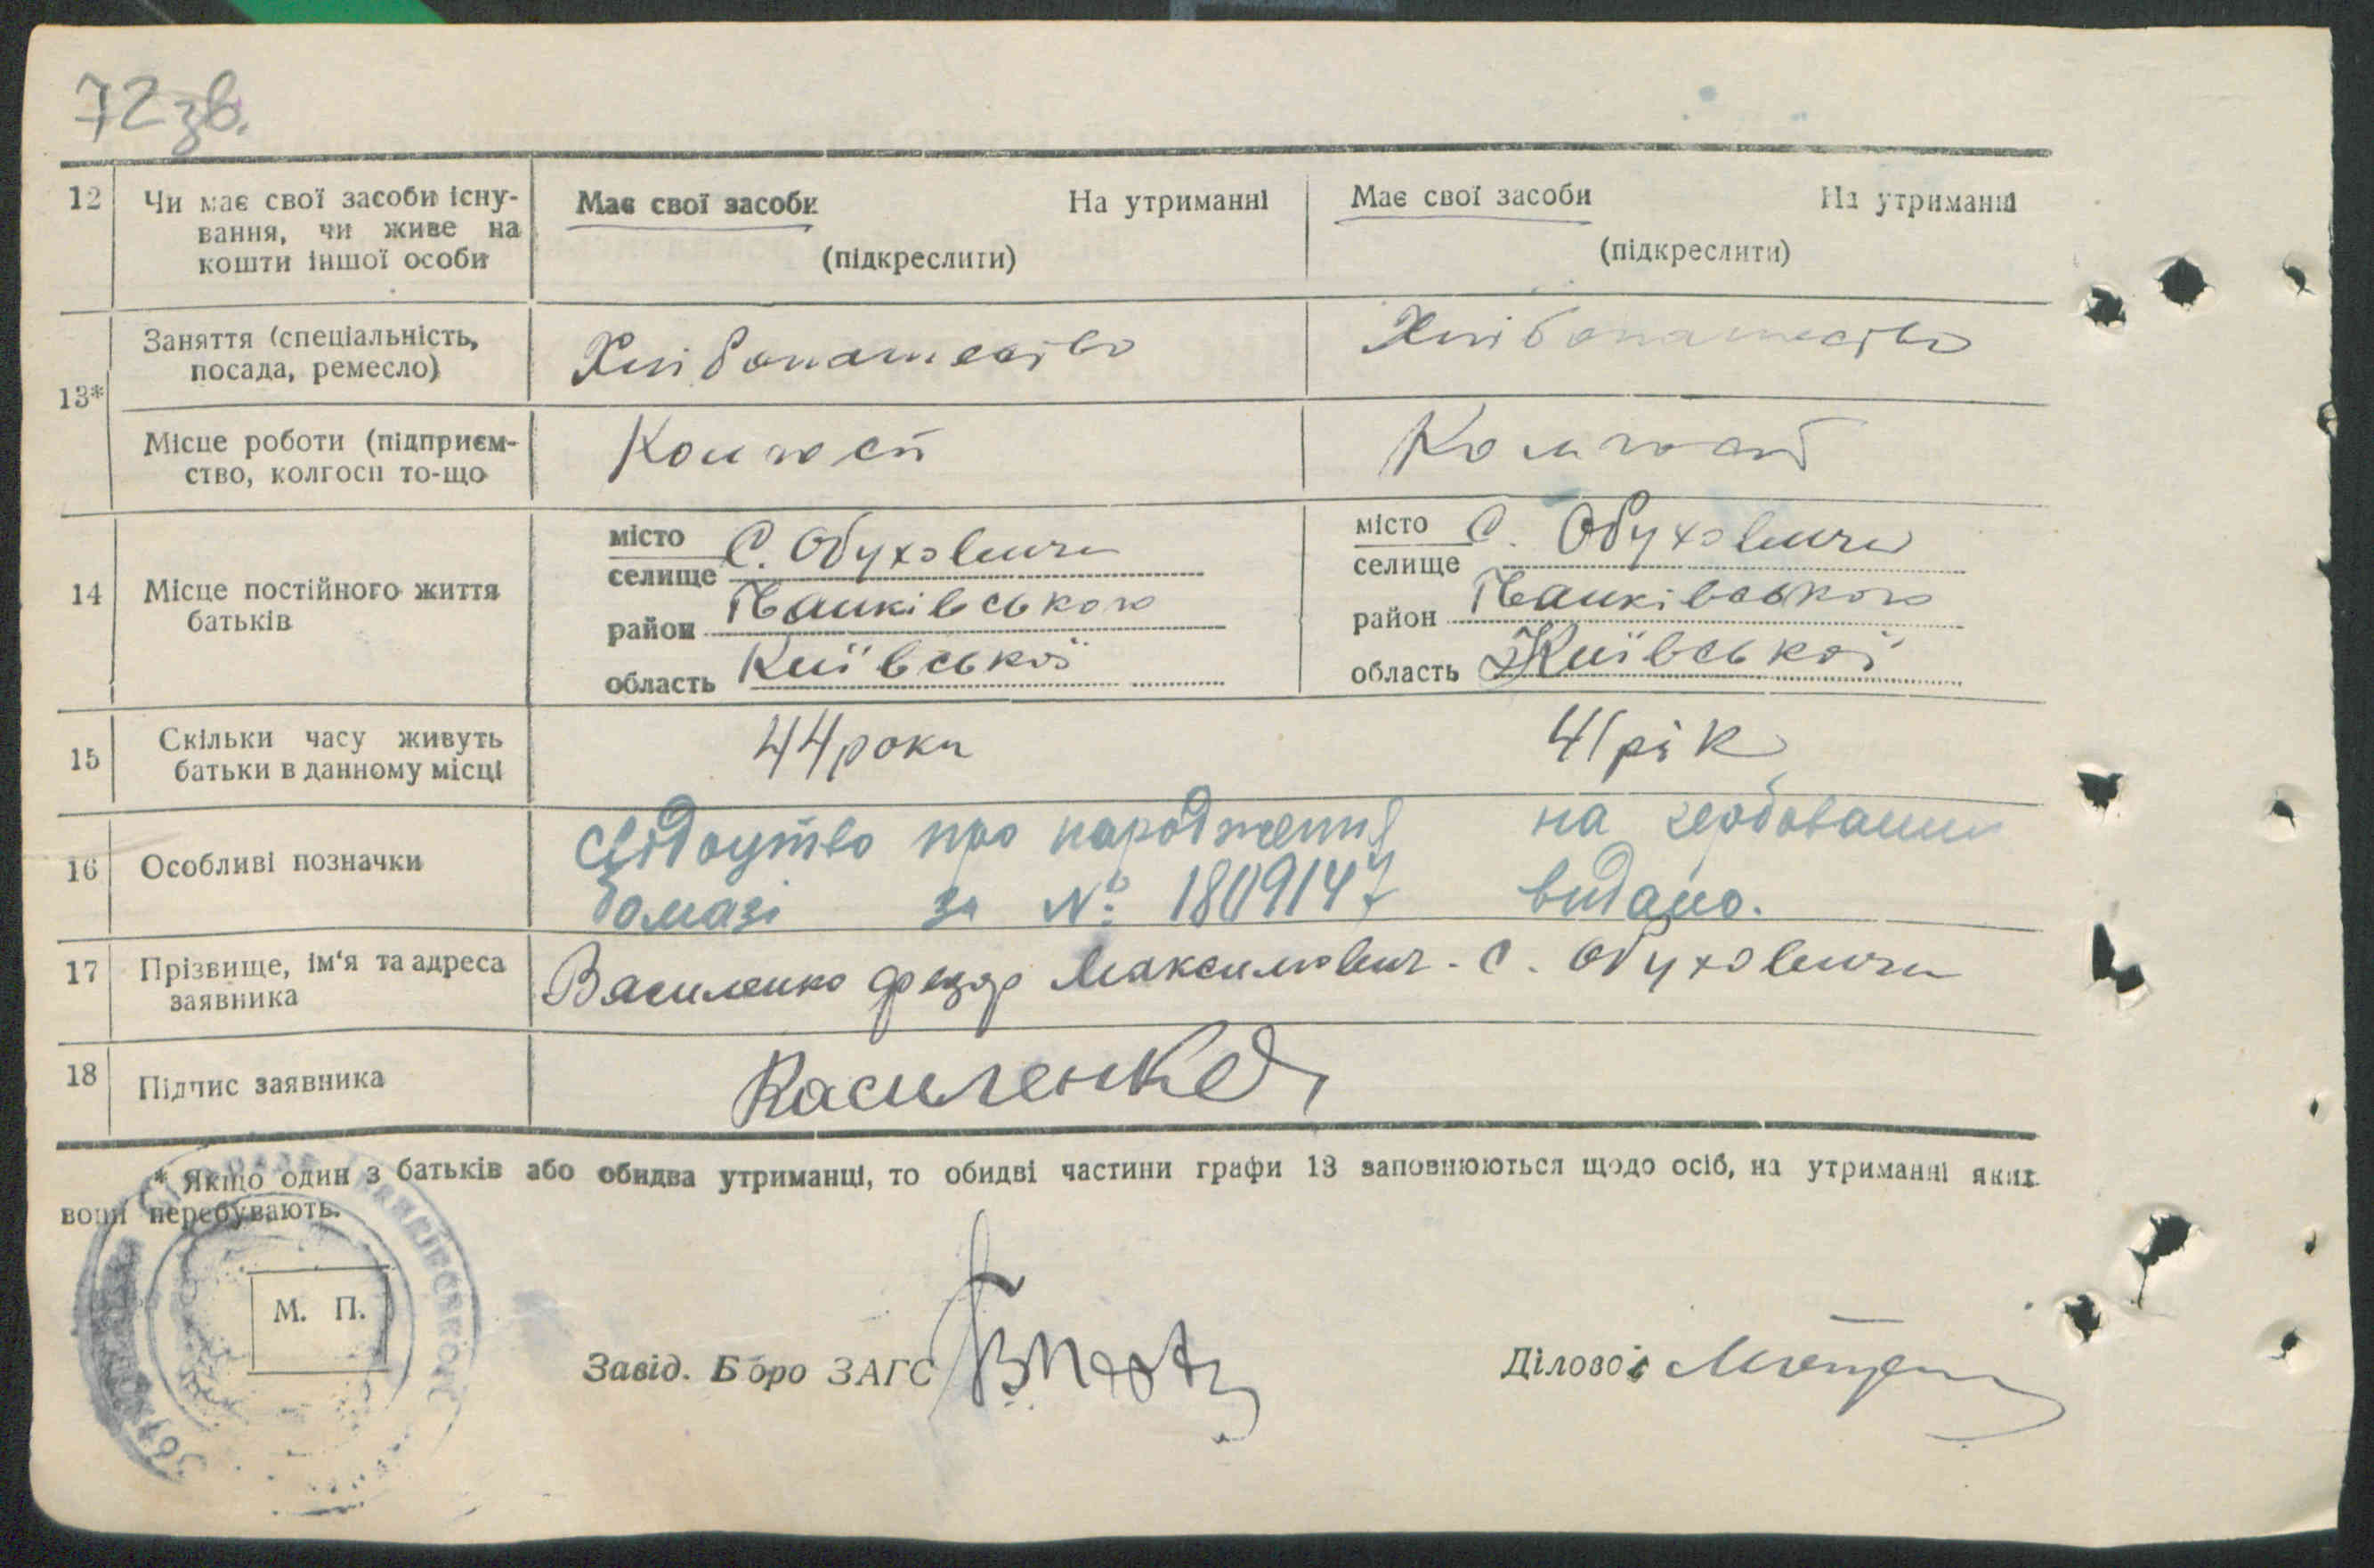 72 зв.
12 Чи має свої засоби існу- Має свої засоби На утриманні Має свої засоби На утриманні
вання, чи живе на
кошти іншої особи (підкреслити) (підкреслити)
13* Заняття (спеціальність, Хлібопашество Хлібопашество
посада, ремесло)
Місце роботи (підприєм- Колгосп Колгосп
ство, колгосп то-що
14 Місце постійного життя
батьків
місто С. Обуховичи
селище
район Іванківського
область Київської
місто С. Обуховичи
селище
район Іванківського
область Київської
15 Скільки часу живуть 44 роки 41 рік
батьки в данному місці
16 Особливі позначки свідоцтво про народження на гербованим
бомазі за № 1809147 видано.
17 Прізвище, ім'я та адреса Василенко Федор Максимович - С. Обуховичи
заявника
18 Підпис заявника Василенко
* Якщо один з батьків або обидва утриманці, то обидві частини графи 13 заповнюються щодо осіб, на утриманні яких
вони перебувають.
М. П.
Завід. Бюро ЗАГС
Діловод